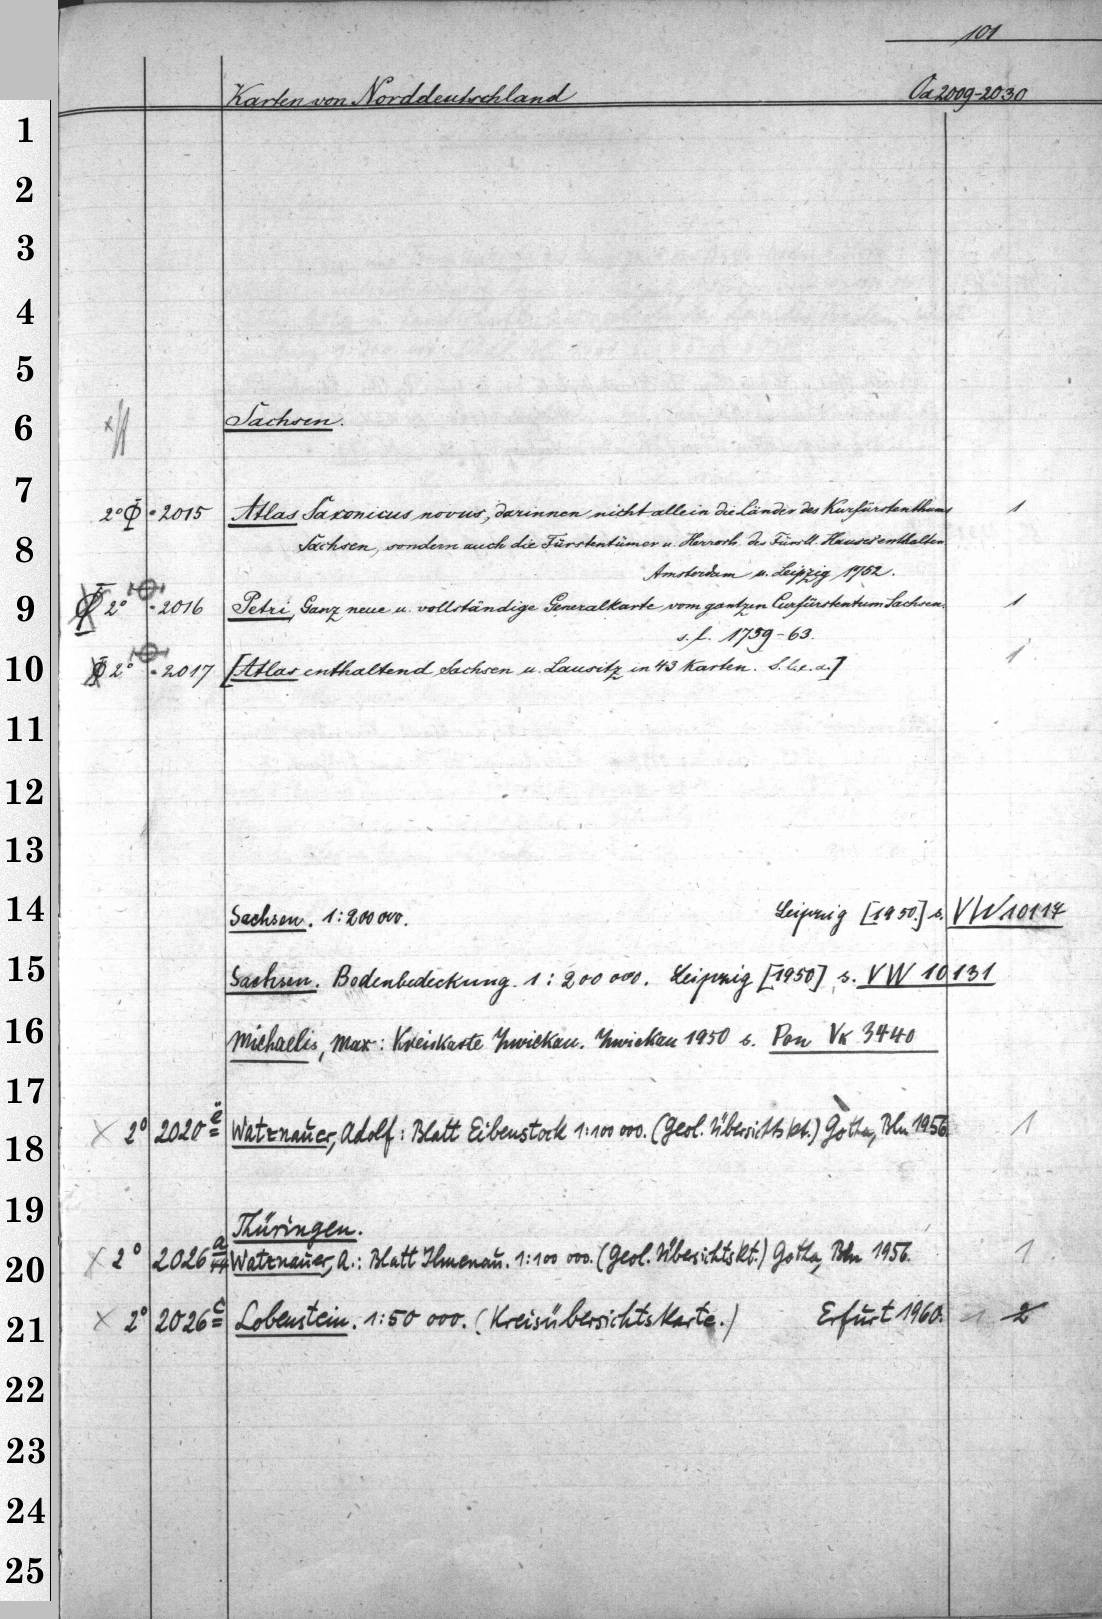 101
Karten von Norddeutschland Oa 2009-2030
1
2
3
4
5
6 Sachsen.
7
2° 2015 Atlas Saxonicus novus, darinnen nicht allein die Länder des Kurfürstenthums 1
8 Sachsen, sondern auch die Fürstentümer u. Herrsch. des Fürstl. Hauses enthalten
Amsterdam u. Leipzig 1752.
9 2° 2016 Petri, Ganz neue u. vollständige Generalkarte vom gantzen Curfürstentum Sachsen. 1
s. l. 1759-63.
10 2° 2017 [Atlas enthaltend Sachsen u. Lausitz in 43 Karten. S. l. e. a.] 1
11
12
13
14 Sachsen. 1:200 000. Leipzig [1950.] s. VW 10117
15 Sachsen. Bodenbedeckung. 1:200 000. Leipzig [1950] s. VW 10131
16 Michaelis, Max: Kreiskarte Zwickau. Zwickau 1950 s. Pon Vk 3440
17
18 × 2° 2020 e Watznauer, Adolf: Blatt Eibenstock 1:100 000. (Geol. Übersichtskt.) Gotha, Bln 1956 1
19 Thüringen.
20 × 2° 2026 a Watznauer, A.: Blatt Ilmenau. 1:100 000. (Geol. Übersichtskt.) Gotha, Bln 1956. 1
21 × 2° 2026 c Lobenstein. 1:50 000. (Kreisübersichtskarte.) Erfurt 1960. 1 2
22
23
24
25